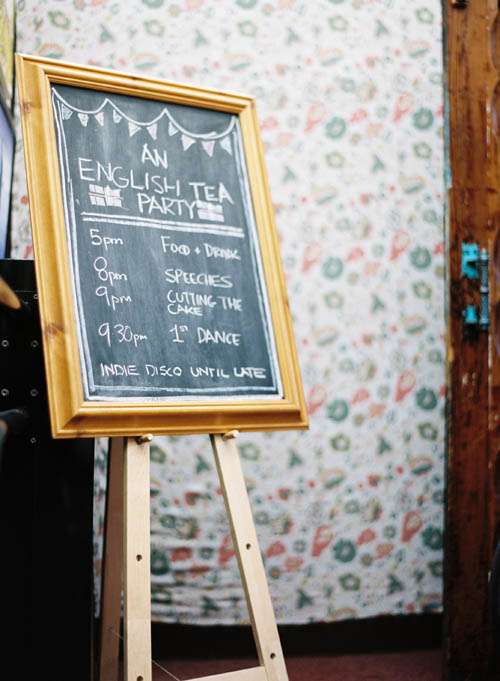 AN
ENGLISH TEA
PARTY
5pm FOOD + DRINK
8pm SPEECHES
9pm CUTTING THE
CAKE
9 30pm 1ST DANCE
INDIE DISCO UNTIL LATE